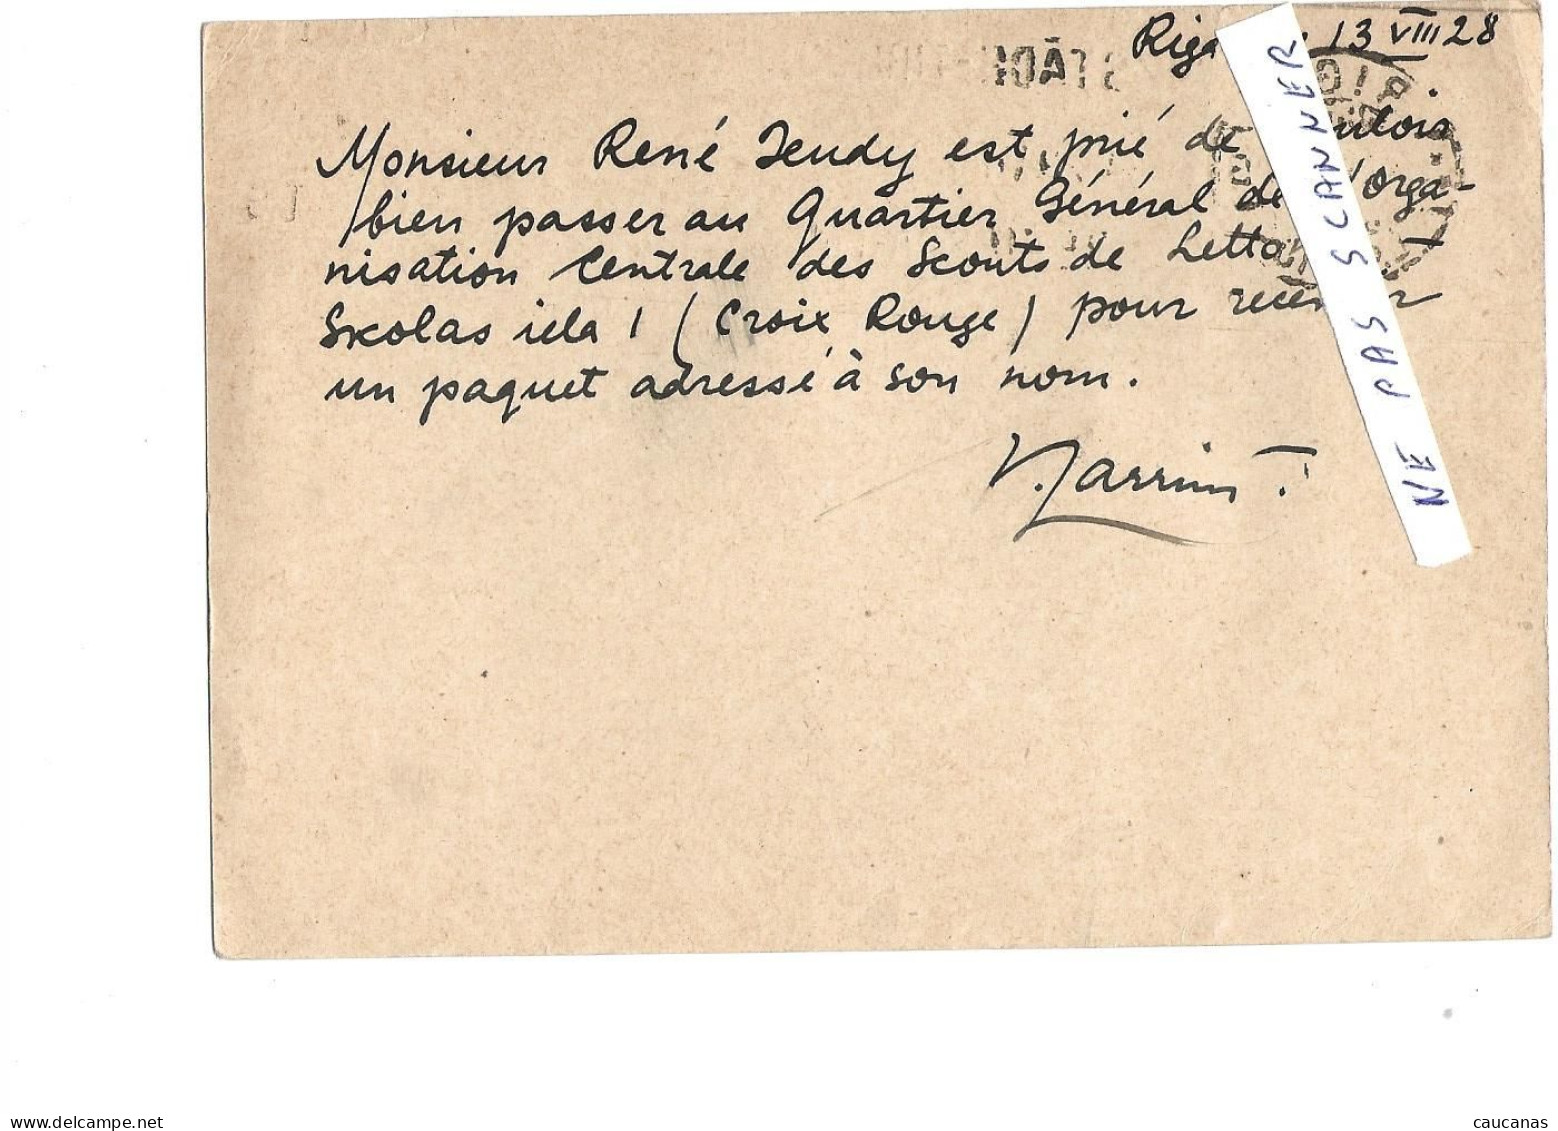 Riga 13 VIII 28
Monsieur René Jeudy est prié de
bien passer au Quartier Général de l'orga-
nisation Centrale des Scouts de Letto
Skolas iela 1 (Croix Rouge) pour
un paquet adressé à son nom.
NE PAS SCANNER
delcampe.net
caucanas